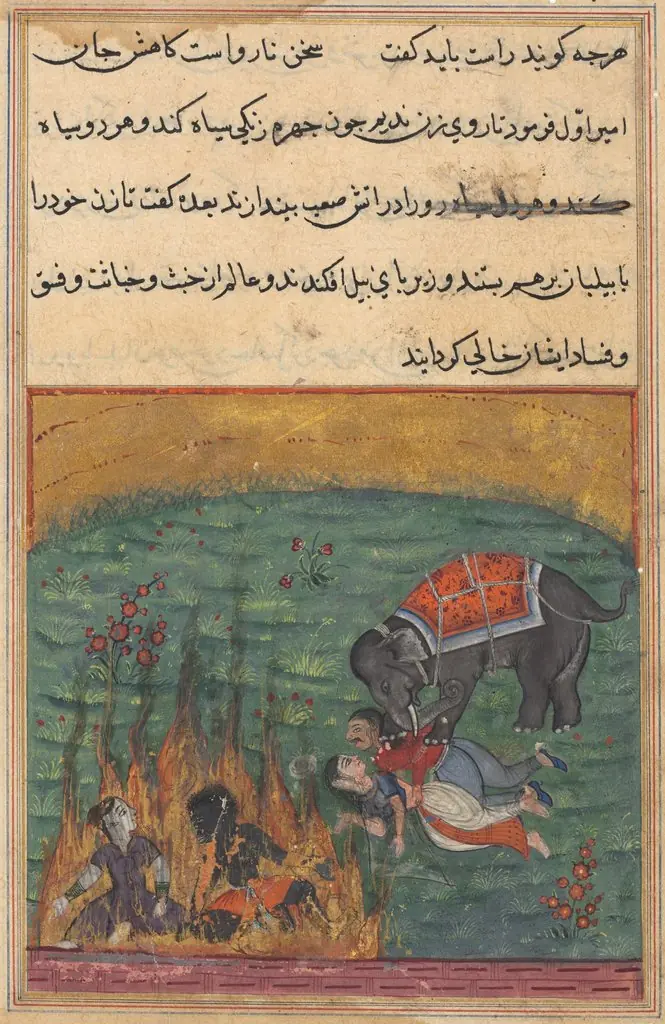 هرچه کویند راست باید کفت سخن ناروا است کاهش جان
امیر اوّل فرمود تا روی زن ندیم چون چهره زنکی سیاه کند و هر دو سیاه
کند و هر دو سیاه رو را در اتش صعب بیندازند بعده کفت تا زن خود را
با بیلبان بر هم بستند و زیر بای بیل افکندند و عالم از خبث و خباثت و فسق
و فساد ایشان خالی کردایند